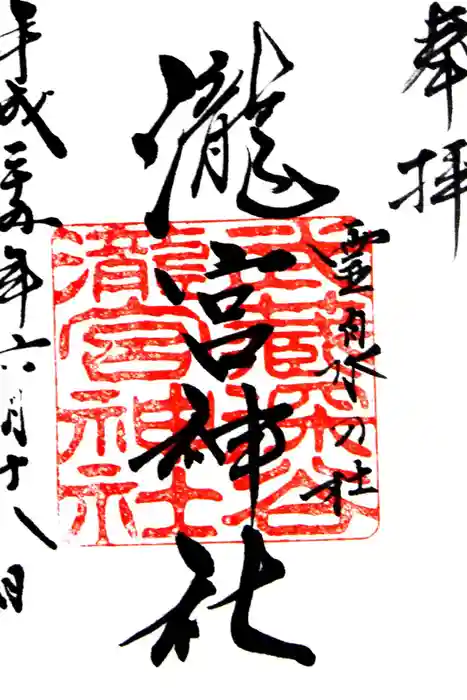 奉拝
霊泉乃社
瀧宮神社
武蔵深谷
瀧宮神社
平成二十五年六月十八日